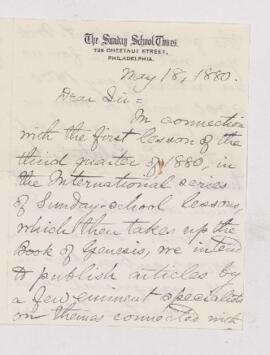 The Sunday School Times.
725 CHESTNUT STREET,
PHILADELPHIA.
May 18, 1880.
Dear Sir =
In connection
with the first lesson of the
third quarter of 1880, in
the International series
of Sunday-school lessons,
which then takes up the
Book of Genesis, we intend
to publish articles by
a few eminent specialists
on themes connected with